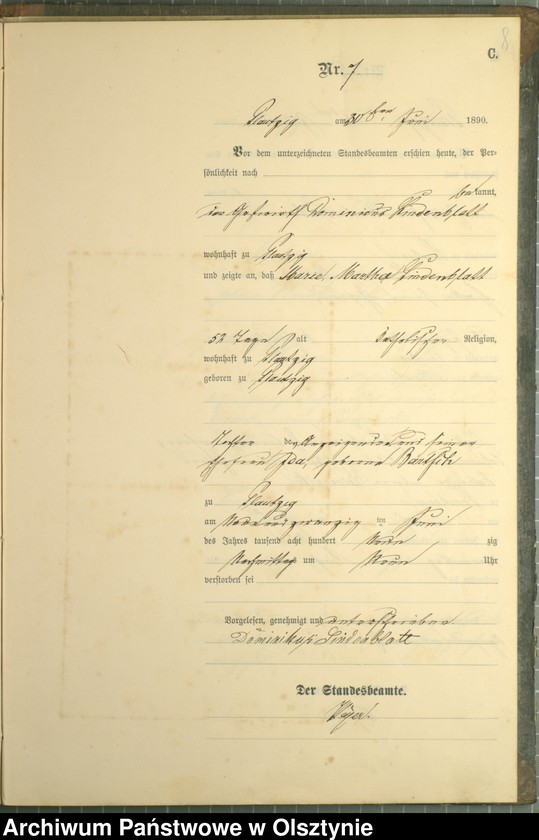 8
C.
Nr. 7
Plautzig am 30ten Juni 1890.
Vor dem unterzeichneten Standesbeamten erschien heute, der Per-
sönlichkeit nach
bekannt,
Dominicus Lindenblatt
wohnhaft zu Plautzig
und zeigte an, daß Marie, Martha Lindenblatt
52 Tage alt katholischer Religion,
wohnhaft zu Plautzig
geboren zu Plautzig
Tochter des Anzeigenden und seiner
Ehefrau Ida, geborene Bartsch
zu Plautzig
am ten Juni
des Jahres tausend acht hundert zig
Nachmittags um Neun Uhr
verstorben sei
Vorgelesen, genehmigt und unterschrieben
Lindenblatt
Der Standesbeamte.
Archiwum Państwowe w Olsztynie